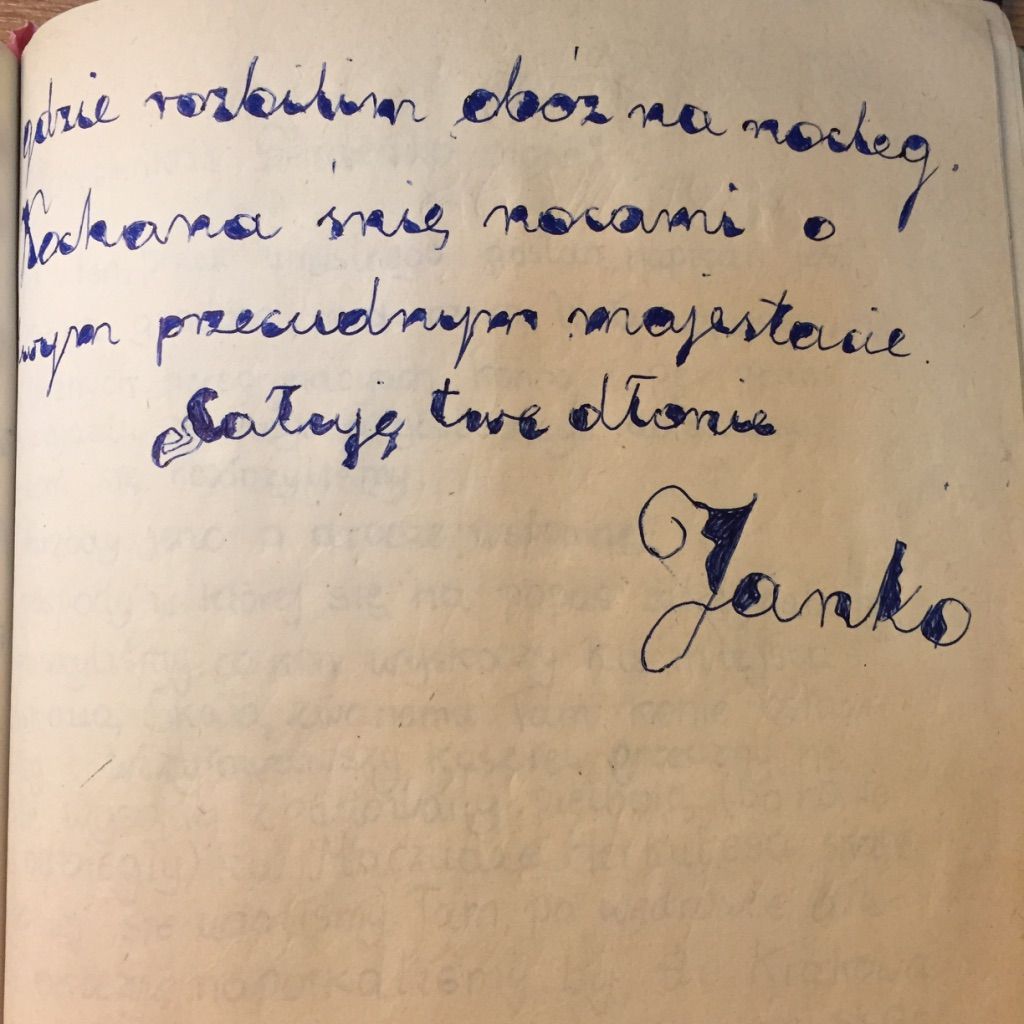 gdzie rozbilim obóz na nocleg.
Kochana śnię nocami o
twym przecudnym majestacie.
Całuję twe dłonie
Janko